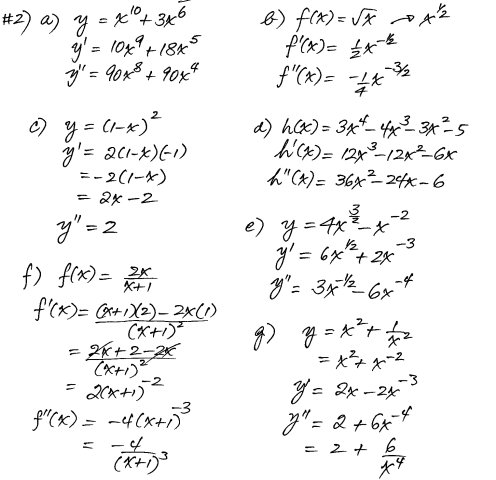 #2) a) y = x¹⁰ + 3x⁶
y' = 10x⁹ + 18x⁵
y'' = 90x⁸ + 90x⁴
b) f(x) = √x → x^½
f'(x) = ½x^-½
f''(x) = -¼x^-3/2
c) y = (1-x)²
y' = 2(1-x)(-1)
= -2(1-x)
= 2x - 2
y'' = 2
d) h(x) = 3x⁴ - 4x³ - 3x² - 5
h'(x) = 12x³ - 12x² - 6x
h''(x) = 36x² - 24x - 6
e) y = 4x^3/2 - x⁻²
y' = 6x^½ + 2x⁻³
y'' = 3x^-½ - 6x⁻⁴
f) f(x) = 2x/(x+1)
f'(x) = (x+1)(2) - 2x(1)/(x+1)²
= 2x + 2 - 2x/(x+1)²
= 2(x+1)⁻²
f''(x) = -4(x+1)⁻³
= -4/(x+1)³
g) y = x² + 1/x²
= x² + x⁻²
y' = 2x - 2x⁻³
y'' = 2 + 6x⁻⁴
= 2 + 6/x⁴